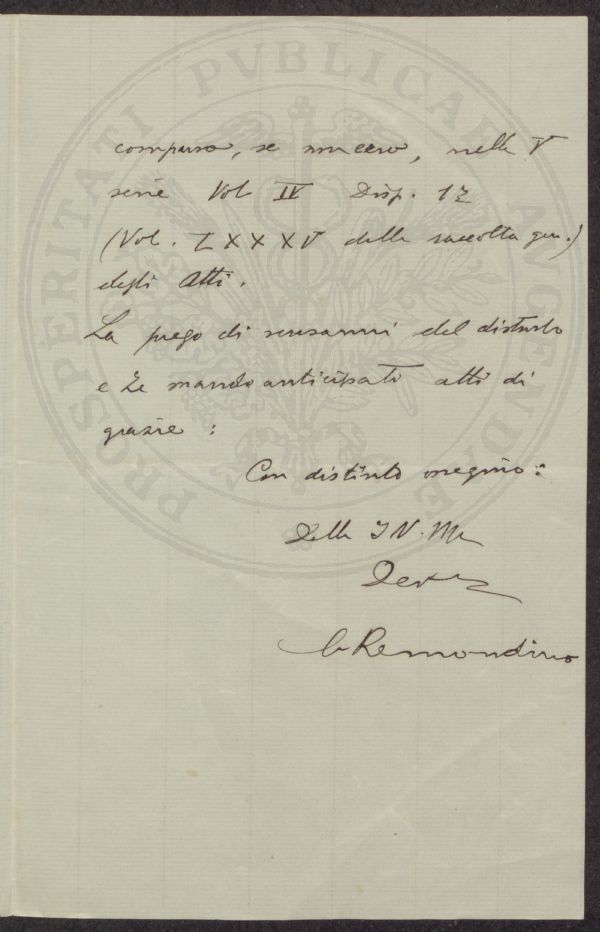 PROSPERITATI PVBLICAE AVGENDAE
comparsa, se non erro, nella V
serie Vol IV Disp. 12
(Vol. LXXXV della raccolta gen.)
degli Atti.
La prego di scusarmi del disturbo
e Le mando anticipati atti di
grazie:
Con distinto ossequio:
Della S.V. Ma
Dev
Remondino